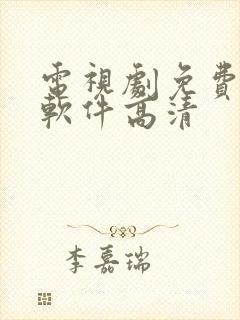 電視劇免費
軟件高清
李嘉瑞